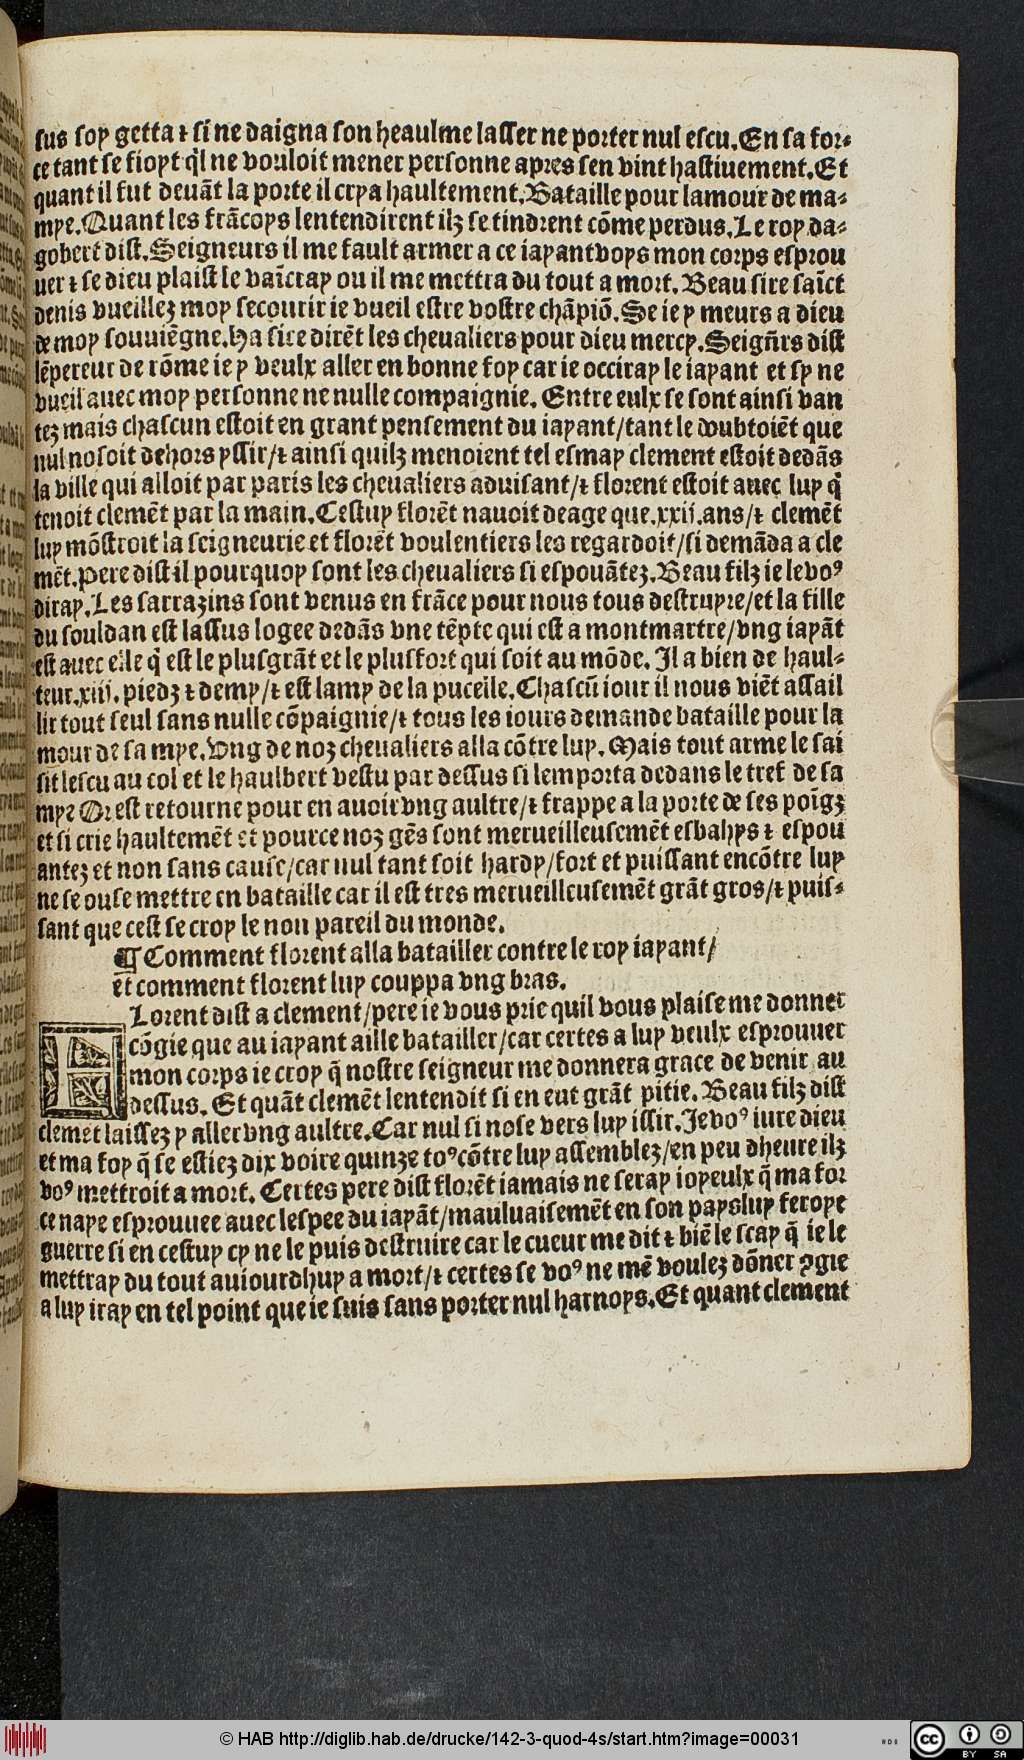 sus soy getta ⁊ si ne daigna son heaulme lasser ne porter nul escu. En sa for⸗
ce tant se fioyt ql̄ ne vouloit mener personne apres sen vint hastiuement. Et
quant il fut deuāt la porte il crya haultement. Bataille pour lamour de ma⸗
mye. Quant les frācoys lentendirent ilz se tindrent cōme perdus. Le roy da⸗
gobert dist. Seigneurs il me fault armer a ce iayant voys mon corps esprou
uer ⁊ se dieu plaist le vaīcray ou il me mettra du tout a mort. Beau sire saīct
denis vueillez moy secourir ie vueil estre vostre chāpiō. Se ie y meurs a dieu
de moy souuiēgne. Ha sire dirēt les cheualiers pour dieu mercy. Seigñrs dist
lēpereur de rōme ie y veulx aller en bonne foy car ie occiray le iayant et sy ne
vueil auec moy personne ne nulle compaignie. Entre eulx se sont ainsi van
tez mais chascun estoit en grant pensement du iayant/tant le doubtoiēt que
nul nosoit dehors yssir/⁊ ainsi quilz menoient tel esmay clement estoit dedās
la ville qui alloit par paris les cheualiers aduisant/⁊ florent estoit auec luy q̄
tenoit clemēt par la main. Cestuy florēt nauoit deage que .xxij. ans/⁊ clemēt
luy mōstroit la seigneurie et florēt voulentiers les regardoit/si demāda a cle
mēt. Pere dist il pourquoy sont les cheualiers si espouātez. Beau filz ie le voꝰ
diray. Les sarrazins sont venus en frāce pour nous tous destruyre/et la fille
du souldan est lassus logee dedās vne tēpte qui est a montmartre/vng iayāt
est auec elle q̄ est le plusgrāt et le plusfort qui soit au mōde. Il a bien de haul⸗
teur .xiij. piedz ⁊ demy/⁊ est lamy de la pucelle. Chascū iour il nous viēt assail
lir tout seul sans nulle cōpaignie/⁊ tous les iours demande bataille pour la
mour de sa mye. Vng de noz cheualiers alla cōtre luy. Mais tout arme le sai
sit lescu au col et le haulbert vestu par dessus si lemporta dedans le tref de sa
mye Or est retourne pour en auoir vng aultre/⁊ frappe a la porte de ses poīgz
et si crie haultemēt et pource noz gēs sont merueilleusemēt esbahys ⁊ espou
antez et non sans cause/car nul tant soit hardy/fort et puissant encōtre luy
ne se ouse mettre en bataille car il est tres merueilleusemēt grāt gros/⁊ puis⸗
sant que cest se croy le non pareil du monde.
¶ Comment florent alla batailler contre le roy iayant/
et comment florent luy couppa vng bras.
FLorent dist a clement/pere ie vous prie quil vous plaise me donner
cōgie que au iayant aille batailler/car certes a luy veulx esprouuer
mon corps ie croy q̄ nostre seigneur me donnera grace de venir au
dessus. Et quāt clemēt lentendit si en eut grāt pitie. Beau filz dist
clemēt laissez y aller vng aultre. Car nul si nose vers luy issir. Ie voꝰ iure dieu
et ma foy q̄ se estiez dix voire quinze toꝰ cōtre luy assemblez/en peu dheure ilz
voꝰ mettroit a mort. Certes pere dist florēt iamais ne seray ioyeulx q̄ ma for
ce naye esprouuee auec lespee du iayāt/mauluaisemēt en son pays luy feroye
guerre si en cestuy cy ne le puis destruire car le cueur me dit ⁊ biē le scay q̄ ie le
mettray du tout auiourdhuy a mort/⁊ certes se voꝰ ne mē voulez dōner ꝯgie
a luy iray en tel point que ie suis sans porter nul harnoys. Et quant clement
© HAB http://diglib.hab.de/drucke/142-3-quod-4s/start.htm?image=00031
cc BY SA